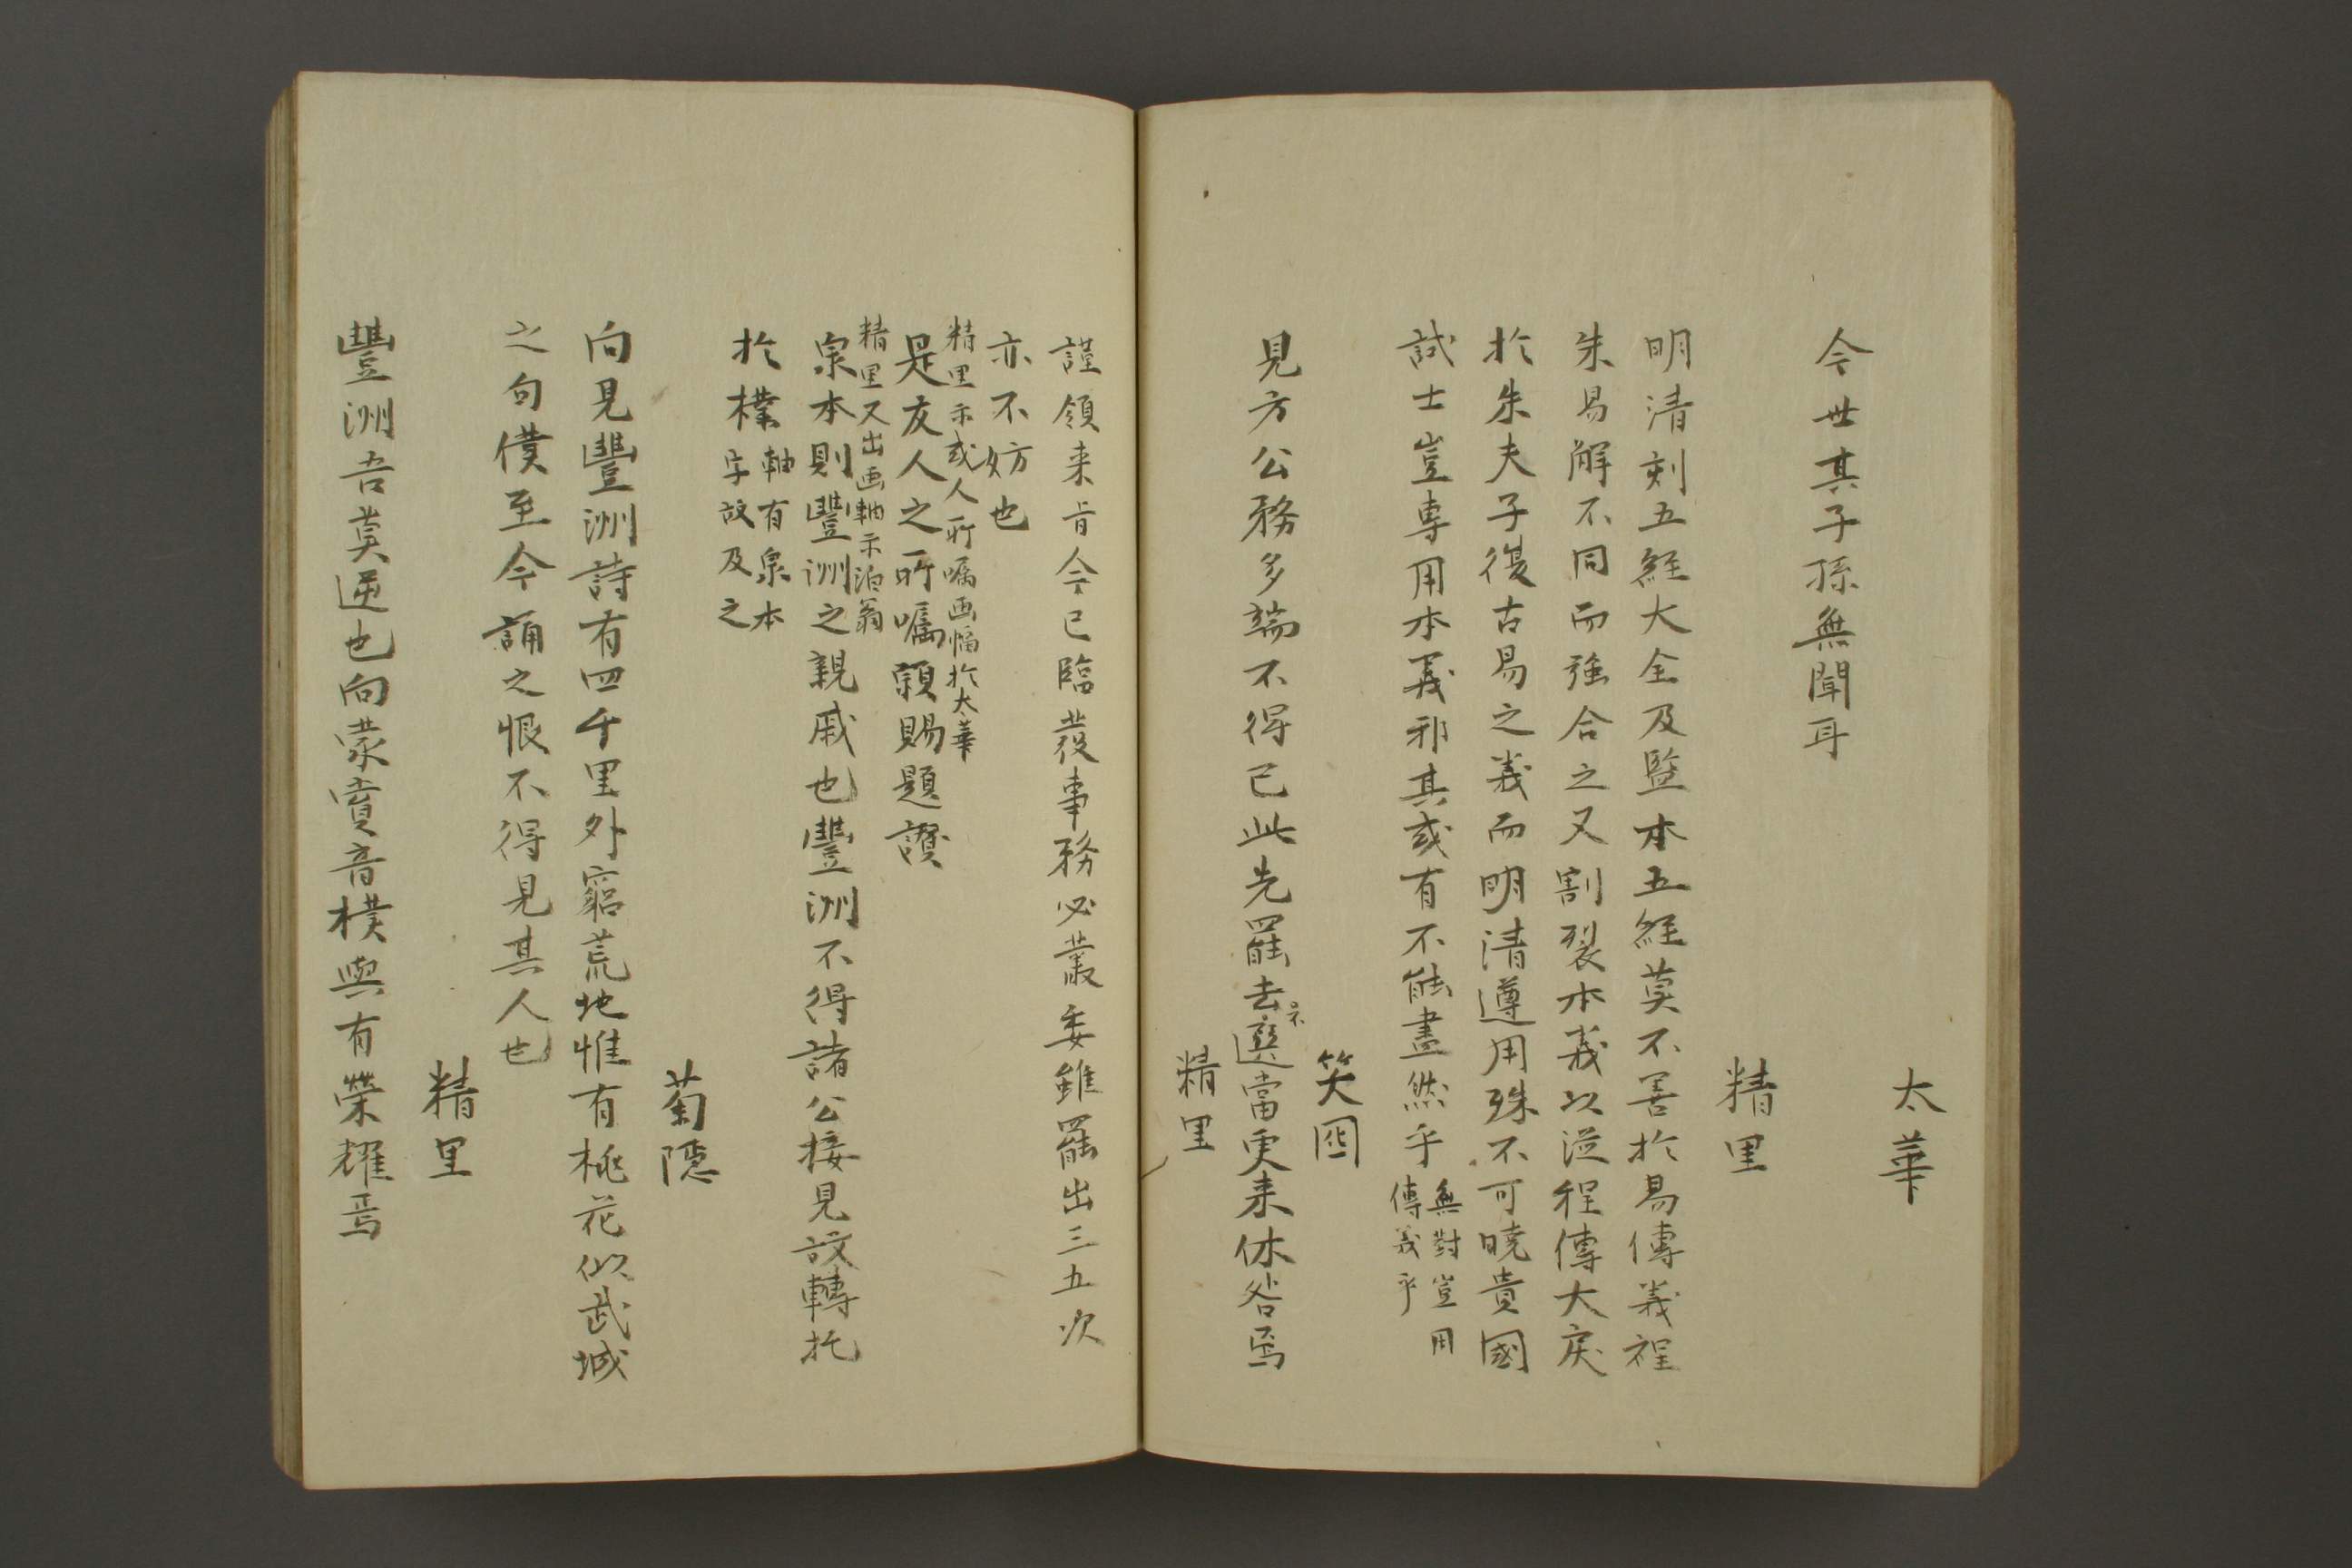 太華
今世其子孫無聞耳
精里
明清刻五経大全及監本五経莫不善於易傳義程
朱易解不同而強合之又割裂本義以從程傳大戾
於朱夫子復古易之義而明清遵用殊不可曉貴國
試士豈専用本義邪其或有不能盡然乎
無對豈用
傳義乎
笑囦
見方公務多端不得已此先罷去選當更来休咎焉
精里
謹領来旨今已臨発事務必叢委雖罷出三五次
亦不妨也
精里示或人所嘱画幅於太華
是友人之所嘱願賜題讚
精里又出画軸示泊翁
泉本則豐洲之親戚也豐洲不得諸公接見故轉托
於樸
軸有泉本
字故及之
菊隠
向見豐洲詩有四千里外窮荒地惟有桃花似武城
之句僕至今誦之恨不得見其人也
精里
豐洲吾莫逆也向蒙賞音樸與有榮耀焉